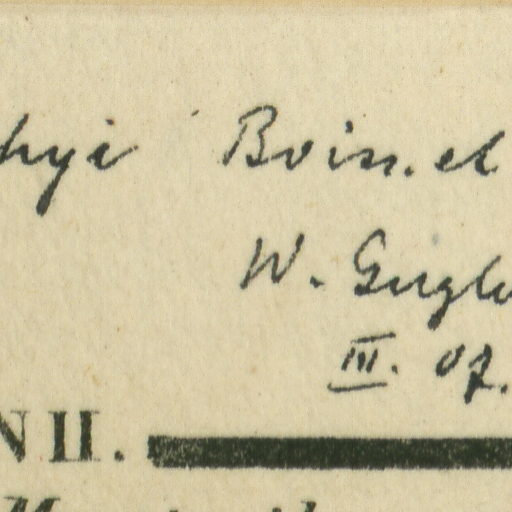 hyi Boiss. et
W. Gugle
III. 07.
N II.